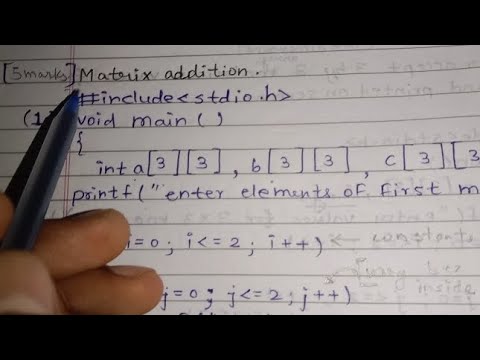 [5marks] Matrix addition.
#include<stdio.h>
(1) void main()
{
int a[3][3], b[3][3], c[3][3
printf("enter elements of first m
i=0; i<=2; i++) ← constants
inside
j=0; j<=2; j++)